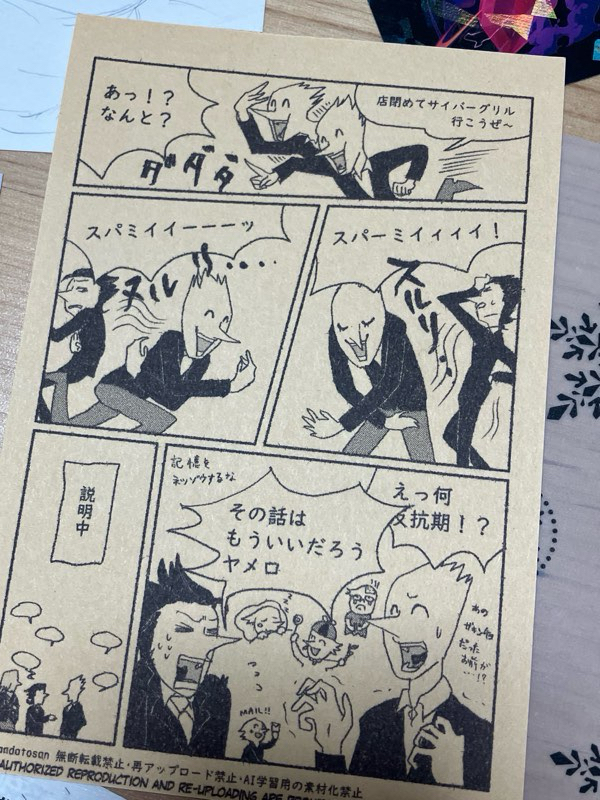 店閉めてサイバーグリル
行こうぜ〜
あっ！？
なんと？
ダダダ
スパーミイイイイ！
スルリ
スパミイイーーーッ
ヌルル
説明中
えっ何
反抗期！？
その話は
もういいだろう
ヤメロ
記憶を
ネツゾウするな
MAIL!!
あの
だった
お前が
…!?
andotosan 無断転載禁止・再アップロード禁止・AI学習用の素材化禁止
AUTHORIZED REPRODUCTION AND RE-UPLOADING ARE